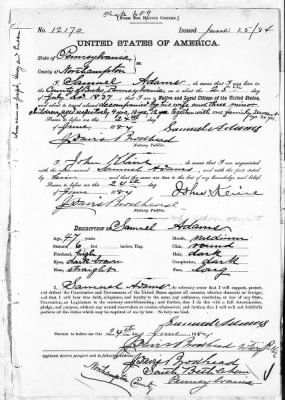 [FORM FOR NATIVE CITIZEN.]
No. 12170 Issued June 25/84
UNITED STATES OF AMERICA.
State of Pennsylvania,
County of Northampton
I, Samuel Adams, do swear that I was born
in the County of Bucks, Pennsylvania on the 28 day
1837; that I am a Native and Loyal Citizen of the United States,
and about to travel abroad accompanied by his wife and three minor
children, aged respectively years, years, years together with one family servant
Sworn to before me this 24th day
of June 1884 Samuel Adams
J. Davis Brodhead
Notary Public.
I, John Kline, do swear that I am acquainted
with the above-named Samuel Adams, and with the facts stated
by him, and that the same are true to the best of my knowledge and belief.
Sworn to before me this 24th day
of June 1884 John Kline
J. Davis Brodhead
Notary Public.
DESCRIPTION OF Samuel Adams
Age, 47 years. Mouth, medium
Stature, 6 feet, inches, Eng. Chin, round
Forehead, high Hair, dark
Eyes, dark brown Complexion, dark
Nose, straight Face, long
I, Samuel Adams, do solemnly swear that I will support, protect,
and defend the Constitution and Government of the United States against all enemies, whether domestic or foreign;
and that I will bear true faith, allegiance, and loyalty to the same, any ordinance, resolution, or law of any State,
Convention, or Legislature to the contrary notwithstanding; and further, that I do this with a full determination,
pledge, and purpose, without any mental reservation or evasion whatsoever; and further, that I will well and faithfully
perform all the duties which may be required of me by law: So help me God.
Samuel Adams
Sworn to before me this 24th day of June 1884
J. Davis Brodhead Notary Public
Applicant desires passport sent to following address:
J. Davis Brodhead
South Bethlehem
Northampton County Pennsylvania